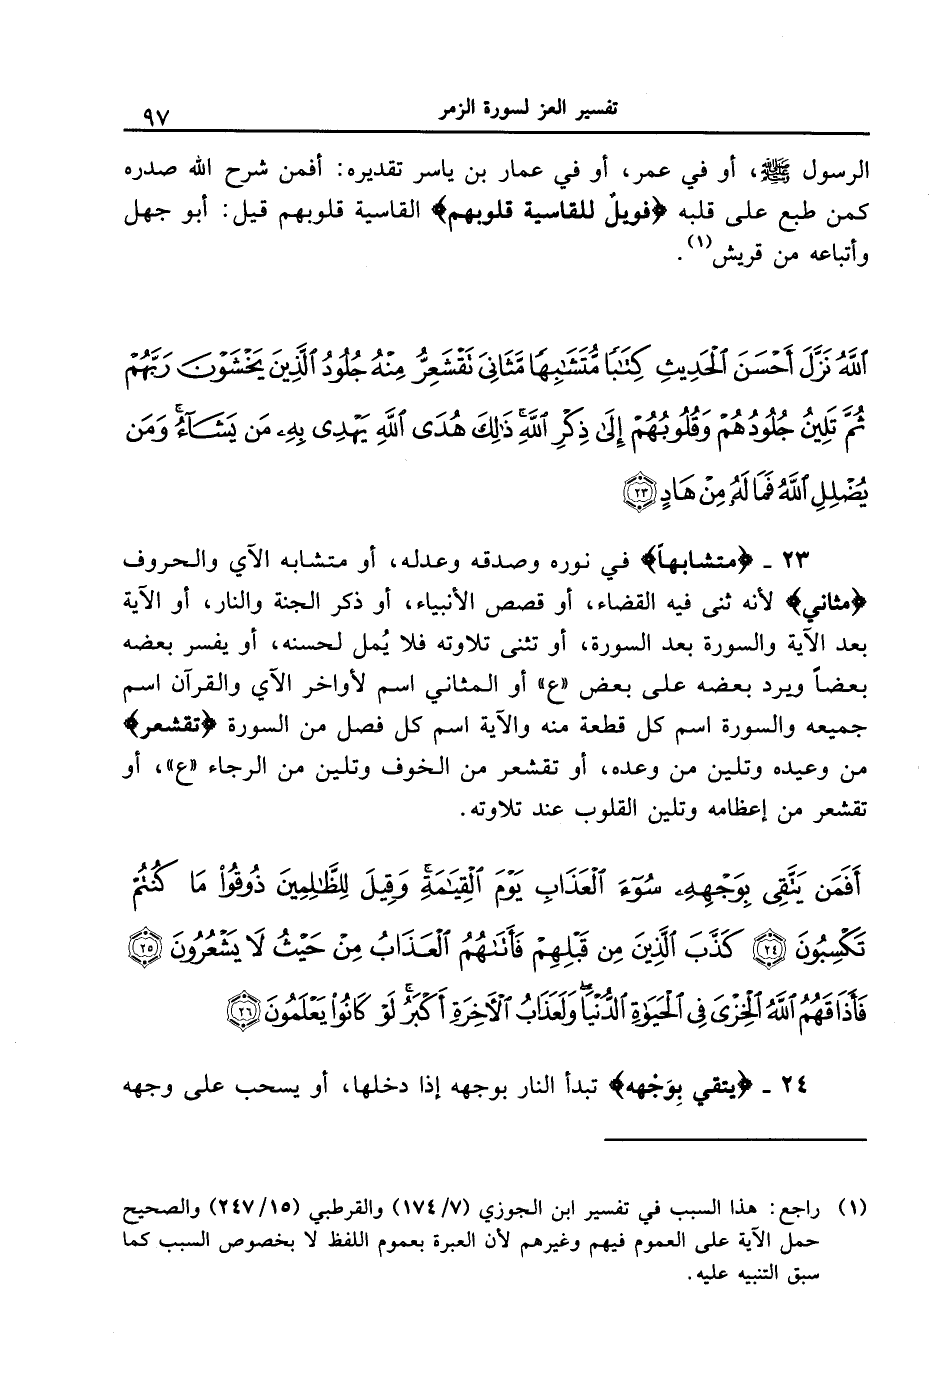 تفسير العز لسورة الزمر
٩٧
الرسول ﷺ، أو في عمر، أو في عمار بن ياسر تقديره: أفمن شرح الله صدره
كمن طبع على قلبه ﴿فويلٌ للقاسية قلوبهم﴾ القاسية قلوبهم قيل: أبو جهل
وأتباعه من قريش(١).
ٱللَّهُ نَزَّلَ أَحْسَنَ ٱلْحَدِيثِ كِتَٰبًا مُّتَشَٰبِهًا مَّثَانِىَ تَقْشَعِرُّ مِنْهُ جُلُودُ ٱلَّذِينَ يَخْشَوْنَ رَبَّهُمْ
ثُمَّ تَلِينُ جُلُودُهُمْ وَقُلُوبُهُمْ إِلَىٰ ذِكْرِ ٱللَّهِ ۚ ذَٰلِكَ هُدَى ٱللَّهِ يَهْدِى بِهِۦ مَن يَشَآءُ ۚ وَمَن
يُضْلِلِ ٱللَّهُ فَمَا لَهُۥ مِنْ هَادٍ ﴿٢٣﴾
٢٣ ـ ﴿متشابهاً﴾ في نوره وصدقه وعدله، أو متشابه الآي والحروف
﴿مثاني﴾ لأنه ثنى فيه القضاء، أو قصص الأنبياء، أو ذكر الجنة والنار، أو الآية
بعد الآية والسورة بعد السورة، أو تثنى تلاوته فلا يُمل لحسنه، أو يفسر بعضه
بعضاً ويرد بعضه على بعض «ع» أو المثاني اسم لأواخر الآي والقرآن اسم
جميعه والسورة اسم كل قطعة منه والآية اسم كل فصل من السورة ﴿تقشعر﴾
من وعيده وتلين من وعده، أو تقشعر من الخوف وتلين من الرجاء «ع»، أو
تقشعر من إعظامه وتلين القلوب عند تلاوته.
أَفَمَن يَتَّقِى بِوَجْهِهِۦ سُوٓءَ ٱلْعَذَابِ يَوْمَ ٱلْقِيَٰمَةِ ۚ وَقِيلَ لِلظَّٰلِمِينَ ذُوقُوا۟ مَا كُنتُمْ
تَكْسِبُونَ ﴿٢٤﴾ كَذَّبَ ٱلَّذِينَ مِن قَبْلِهِمْ فَأَتَىٰهُمُ ٱلْعَذَابُ مِنْ حَيْثُ لَا يَشْعُرُونَ ﴿٢٥﴾
فَأَذَاقَهُمُ ٱللَّهُ ٱلْخِزْىَ فِى ٱلْحَيَوٰةِ ٱلدُّنْيَا ۖ وَلَعَذَابُ ٱلْءَاخِرَةِ أَكْبَرُ ۚ لَوْ كَانُوا۟ يَعْلَمُونَ ﴿٢٦﴾
٢٤ ـ ﴿يتقي بِوَجْهه﴾ تبدأ النار بوجهه إذا دخلها، أو يسحب على وجهه
(١) راجع: هذا السبب في تفسير ابن الجوزي (٧/ ١٧٤) والقرطبي (١٥/ ٢٤٧) والصحيح
حمل الآية على العموم فيهم وغيرهم لأن العبرة بعموم اللفظ لا بخصوص السبب كما
سبق التنبيه عليه.